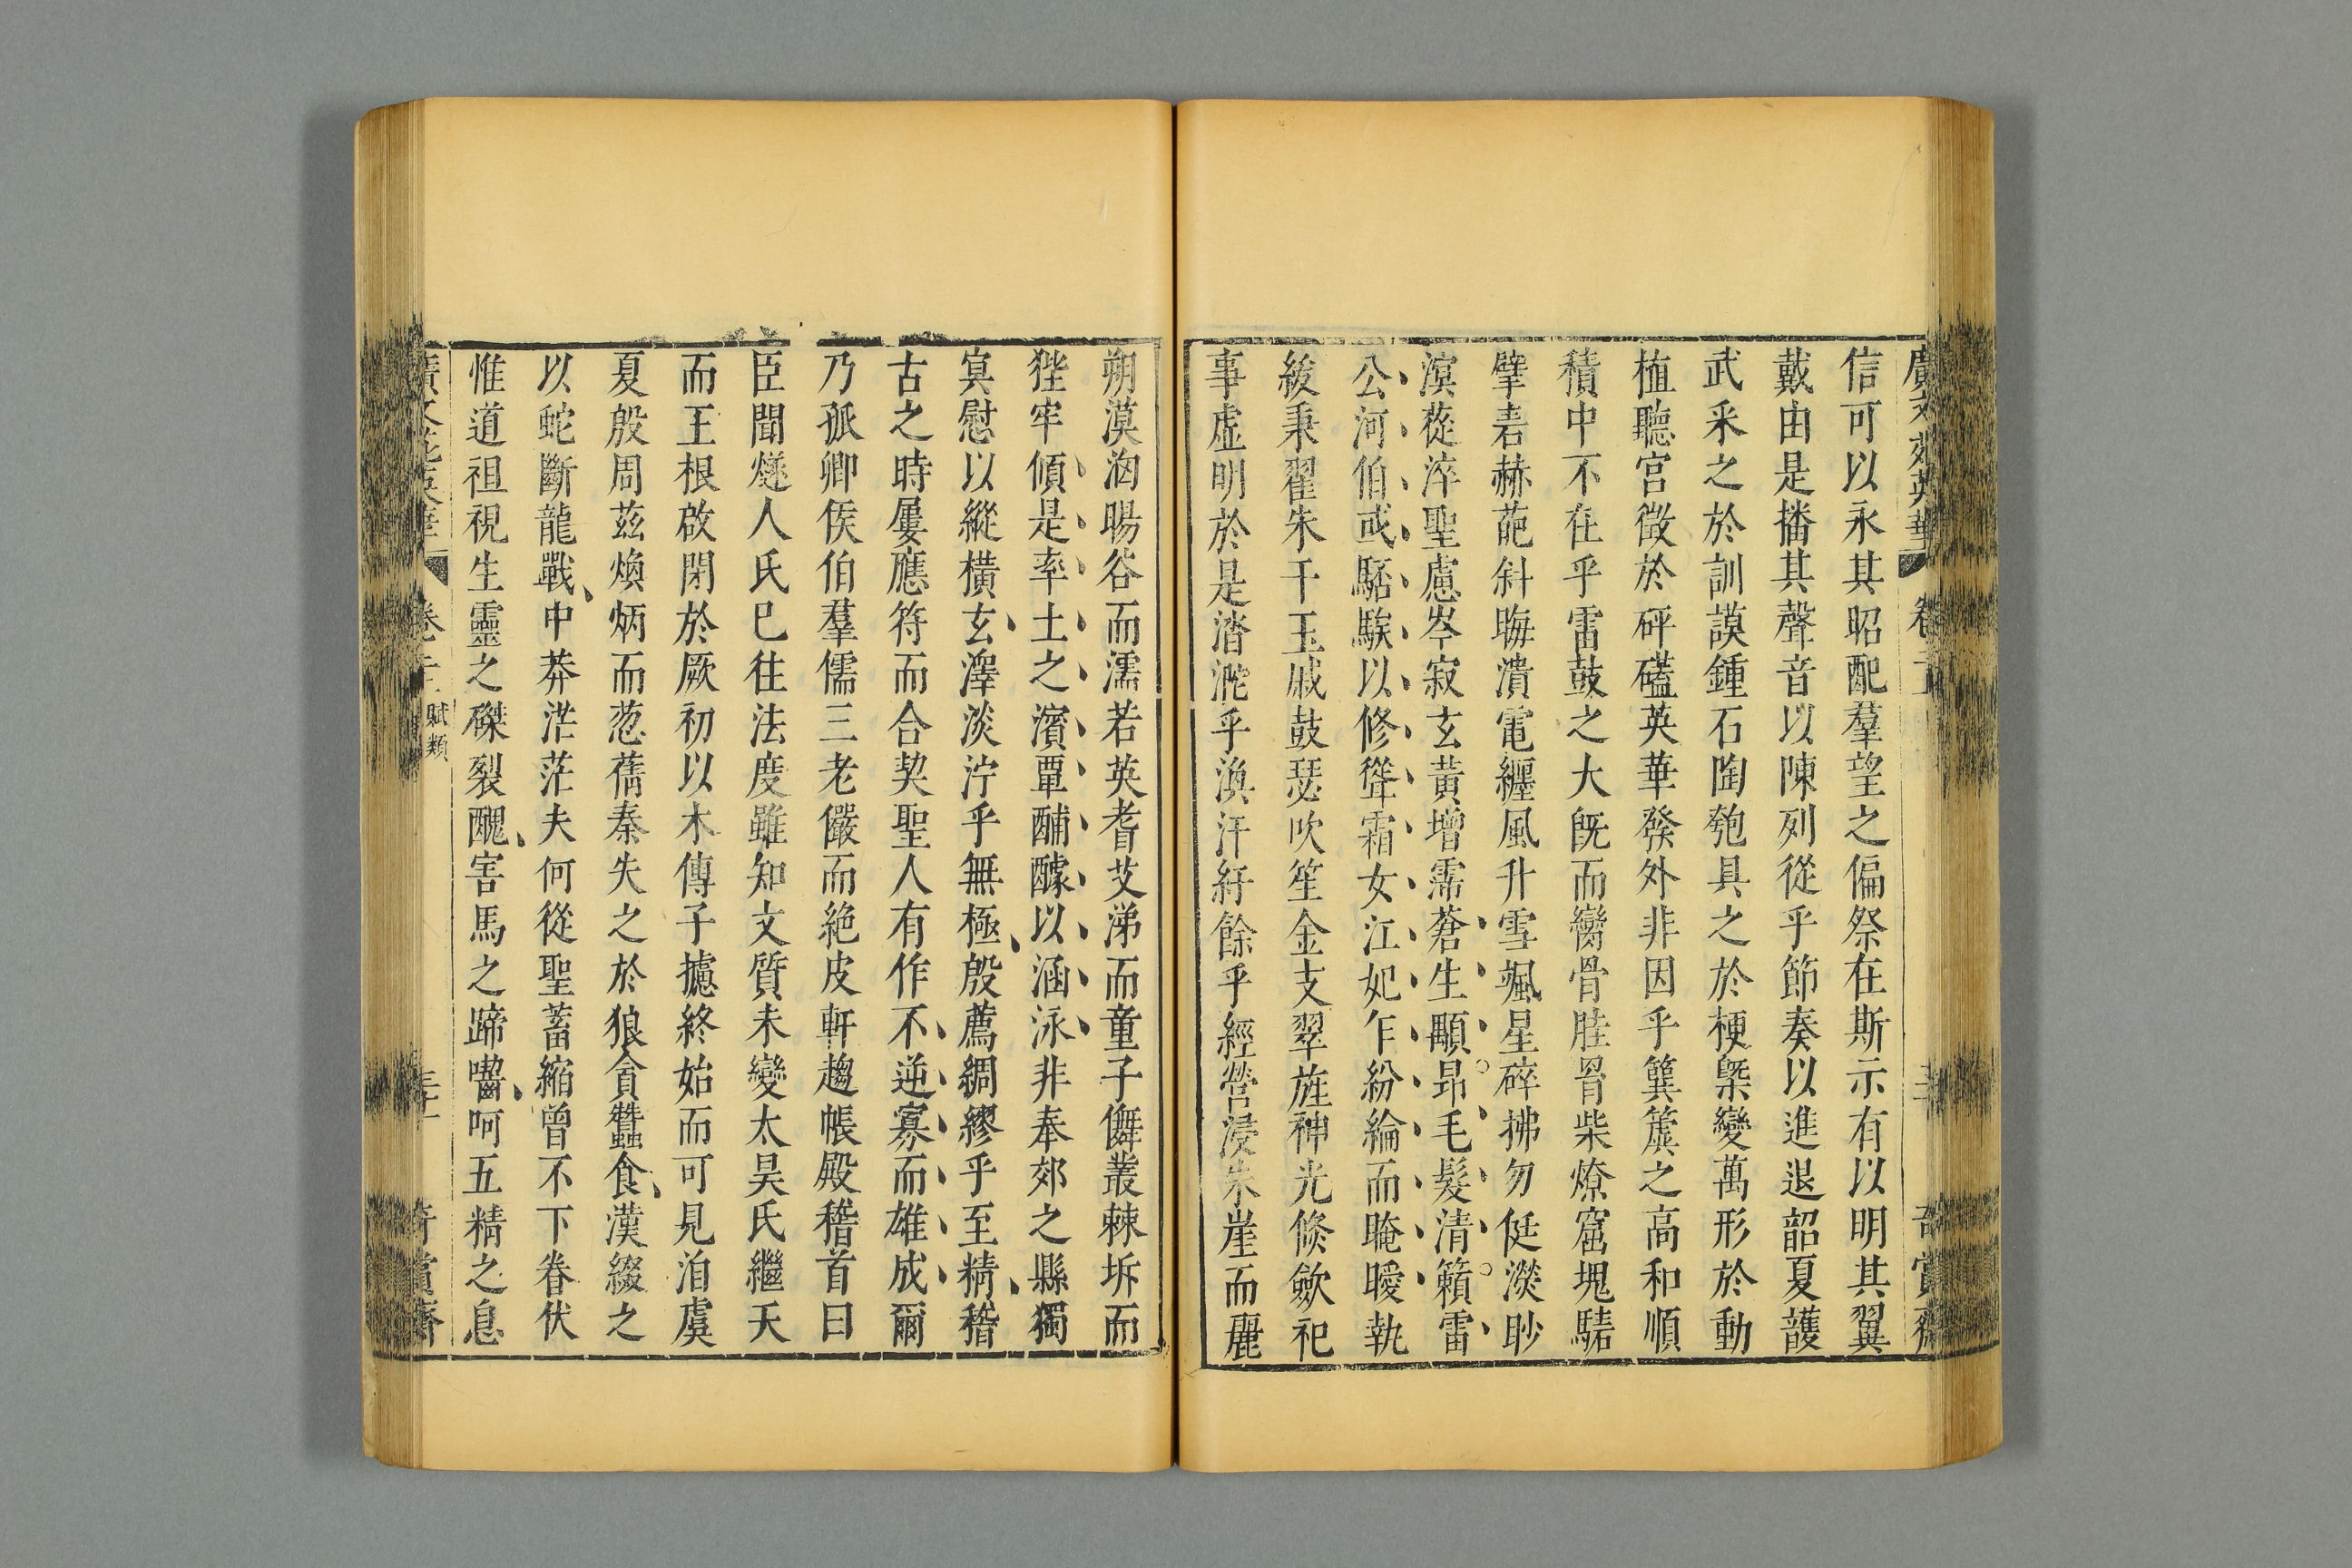 信可以永其昭配羣望之偏祭在斯示有以明其翼
戴由是播其聲音以陳列從乎節奏以進退韶夏頀
武釆之於訓謨鍾石陶匏具之於梗槩變萬形於動
植聽宫徵於砰礚英華發外非因乎簨簴之高和順
積中不在乎雷鼓之大旣而臠骨胜膋柴燎窟塊騞
擘砉赫葩斜晦潰電纏風升雪颯星碎拂勿侹濙眇
溟蓯淬聖慮岑寂玄黃增霈蒼生顒昻毛髮清籟雷
公河伯或駓騃以修聳霜女江妃乍紛綸而晻曖執
紱秉翟朱干玉戚鼓瑟吹笙金支翠旌神光倐歘祀
事虛明於是濳漇乎渙汗紆餘乎經營浸朱崖而麗
朔漠洶暘谷而濡若英耆艾涕而童子儛叢棘坼而
狴牢傾是率土之濱覃酺醵以涵泳非奉郊之縣獨
寘慰以縱橫玄澤淡泞乎無極殷薦綢繆乎至精稽
古之時屢應符而合契聖人有作不逆寡而雄成爾
乃孤卿侯伯羣儒三老儼而絶皮軒趨帳殿稽首曰
臣聞燧人氏已往法度雖知文質未變太昊氏繼天
而王根啟閉於厥初以木傳子攄終始而可見洎虞
夏殷周茲煥炳而葱蒨秦失之於狼貪蠶食漢綴之
以蛇斷龍戰中莽茫茫夫何從聖蓄縮曾不下眷伏
惟道祖視生靈之磔裂醜害馬之蹄嚙呵五精之息
賦類